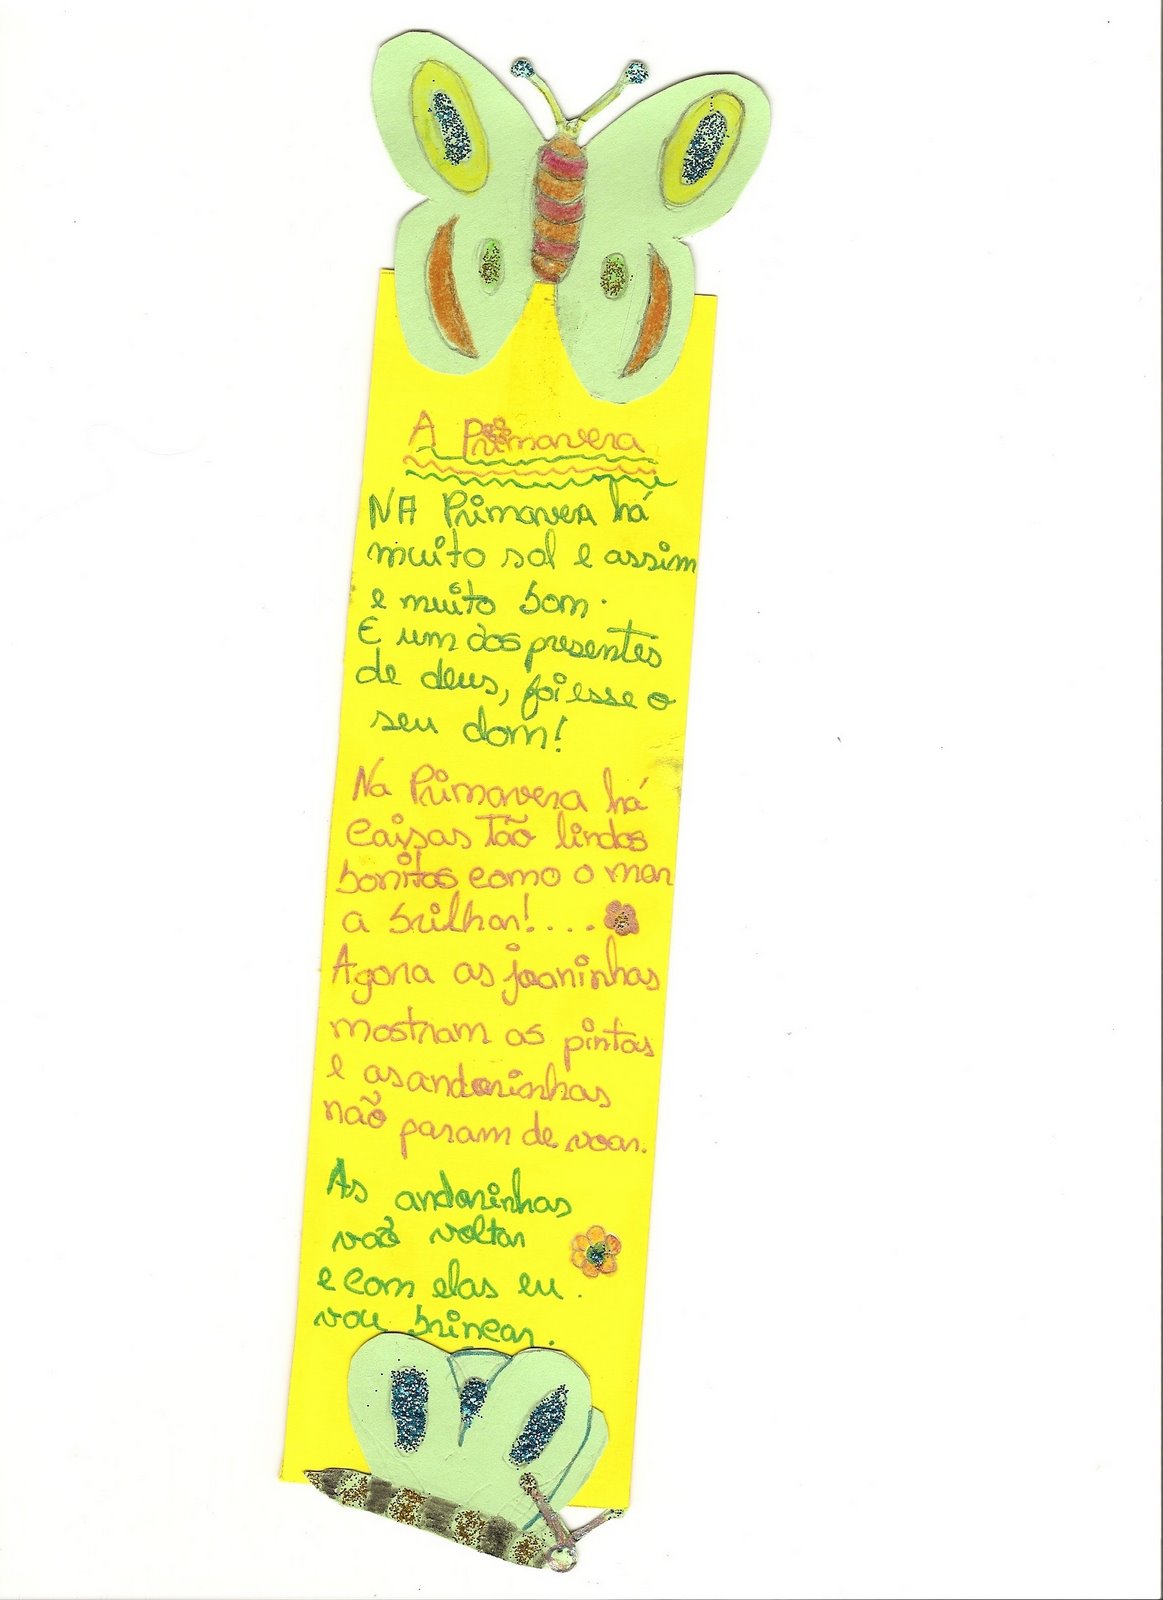 A Primavera
NA Primavera há
muito sol e assim
e muito bom.
E um dos presentes
de deus, foi esse o
seu dom!
Na Primavera há
Caisas tão lindas
bonitas como o mar
a brilhar!....
Agora as joaninhas
mostram as pintas
e as andorinhas
não param de voar.
As andorinhas
vaõ voltar
e com elas eu
vou brincar.